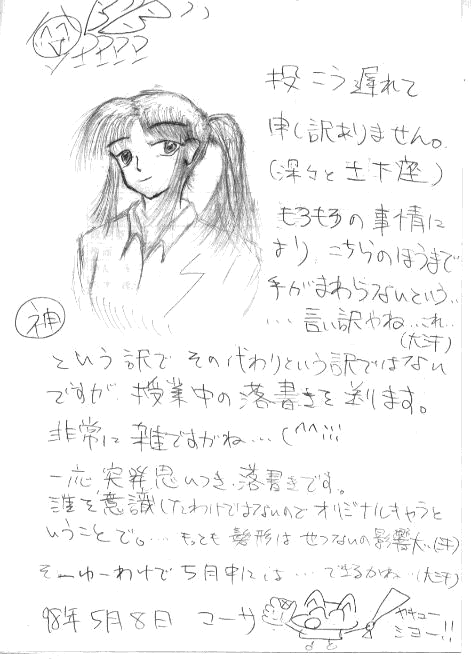 投こう遅れて
申し訳ありません。
(深々と土下座)
もろもろの事情に
より、こちらのほうまで
手がまわらないという‥
… 言い訳やね…これ‥
(大汗)
神
という訳で その代わりという訳ではない
ですが、授業中の落書きを送ります。
非常に雑ですがね…(^^;;;
一応、突発思いつき、落書きです。
誰を意識したわけではないので オリジナルキャラと
いうことで。… もっとも 髪形は せつないの影響大‥(汗)
そーゆーわけで 5月中には … で出るかね‥(大汗)
98年5月8日 コーサ
ヤキュー
ミョー!!